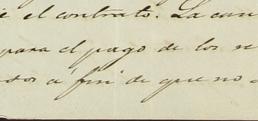 el contrato. La can
para el pago de los
a fin de que no